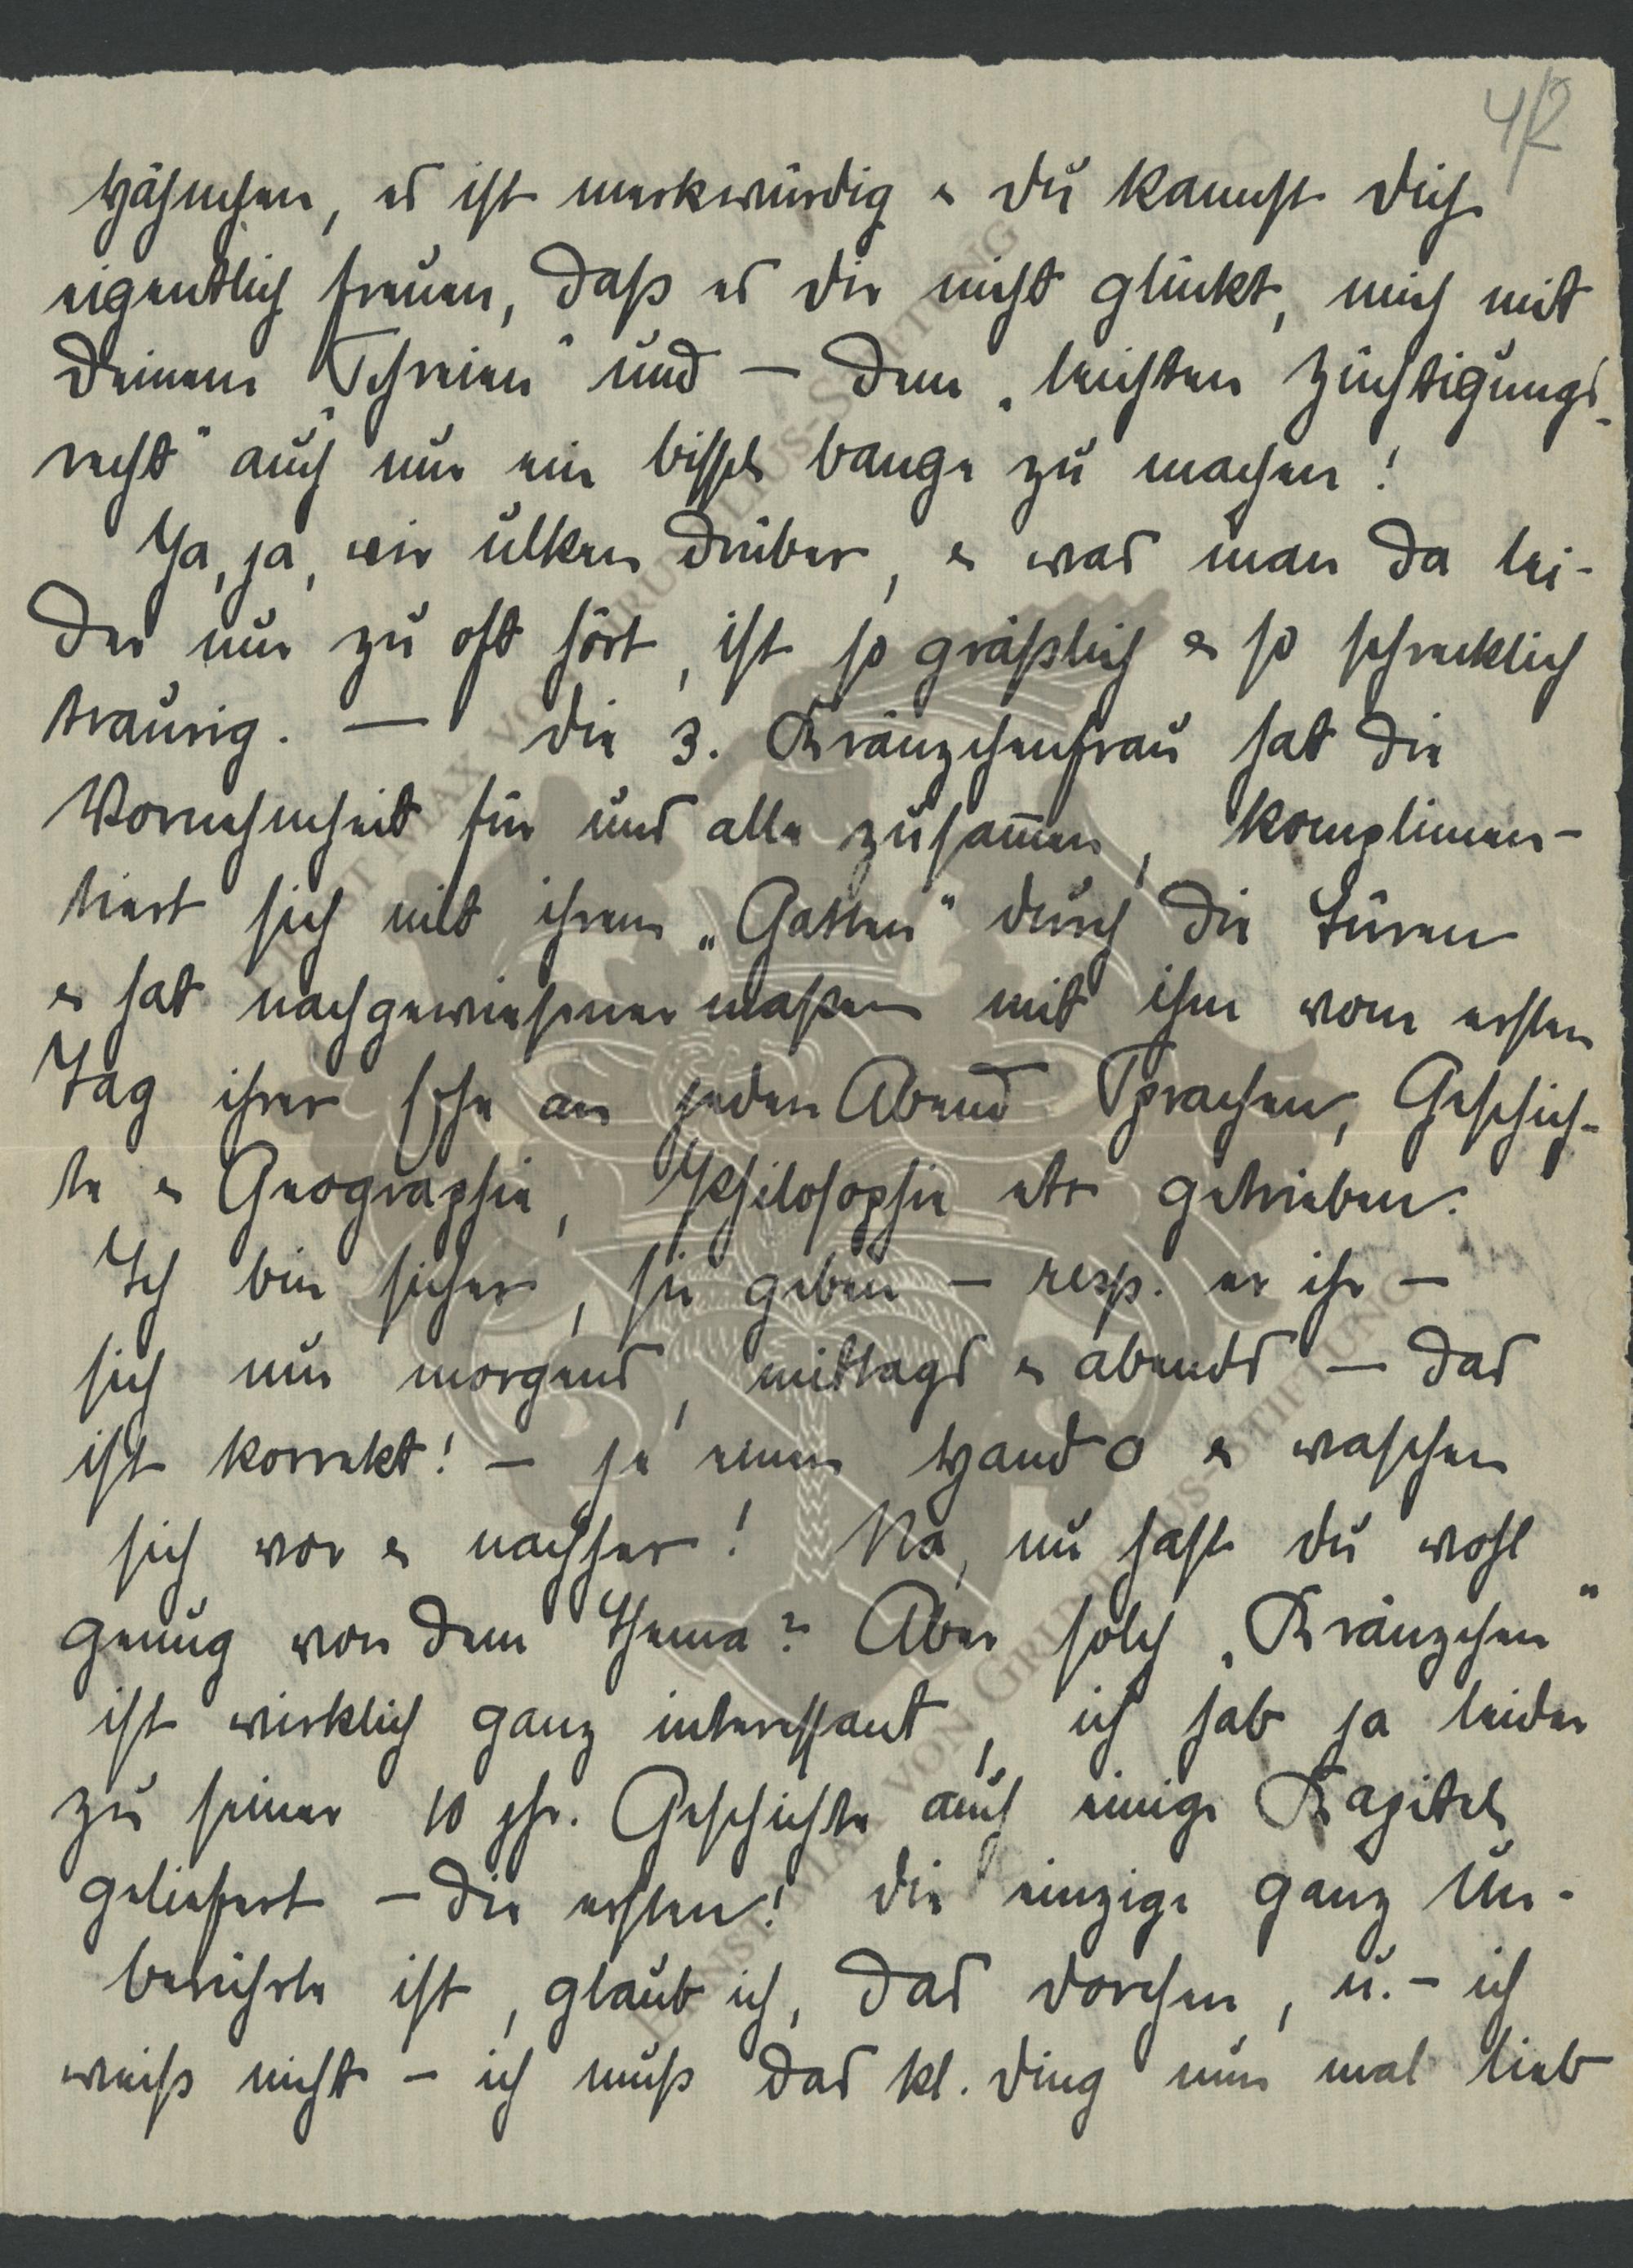 4/2
Hähnchen, es ist merkwürdig & Du kannst Dich
eigentlich freuen, daß es Dir nicht glückt, mich mit
Deinem "Schreien" und – dem „leichten Züchtigungs-
recht" auch nur ein bissel bange zu machen!
Ja, ja, wir ulken drüber, & was man da lei-
der nur zu oft hört, ist so gräßlich & so schrecklich
traurig. — Die 3. Kränzchenfrau hat die
Vornehmheit für uns alle zusam̅en, komplimen-
tiert sich mit ihrem „Gatten" durch die Türen
& hat nachgewiesenermaßen mit ihm vom ersten
Tag ihrer Ehe an jeden Abend Sprachen, Geschich-
te & Geographie, Philosophie etc getrieben.
Ich bin sicher, sie geben – resp. er ihr –
sich nur morgens, mittags & abends – das
ist korrekt! – je einen Hand O & waschen
sich vor & nachher! Na, nu hast Du wohl
genug von dem Thema? Aber solch „Kränzchen"
ist wirklich ganz interessant, ich hab ja leider
zu seiner 10 jhr. Geschichte auch einige Kapitel
geliefert – die ersten! Die einzige ganz Un-
berührte ist, glaub ich, das Dorchen, u. – ich
weiß nicht – ich muß das kl. Ding nun mal lieb
ERNST MAX VON GRUNELIUS-STIFTUNG
ERNST MAX VON GRUNELIUS-STIFTUNG